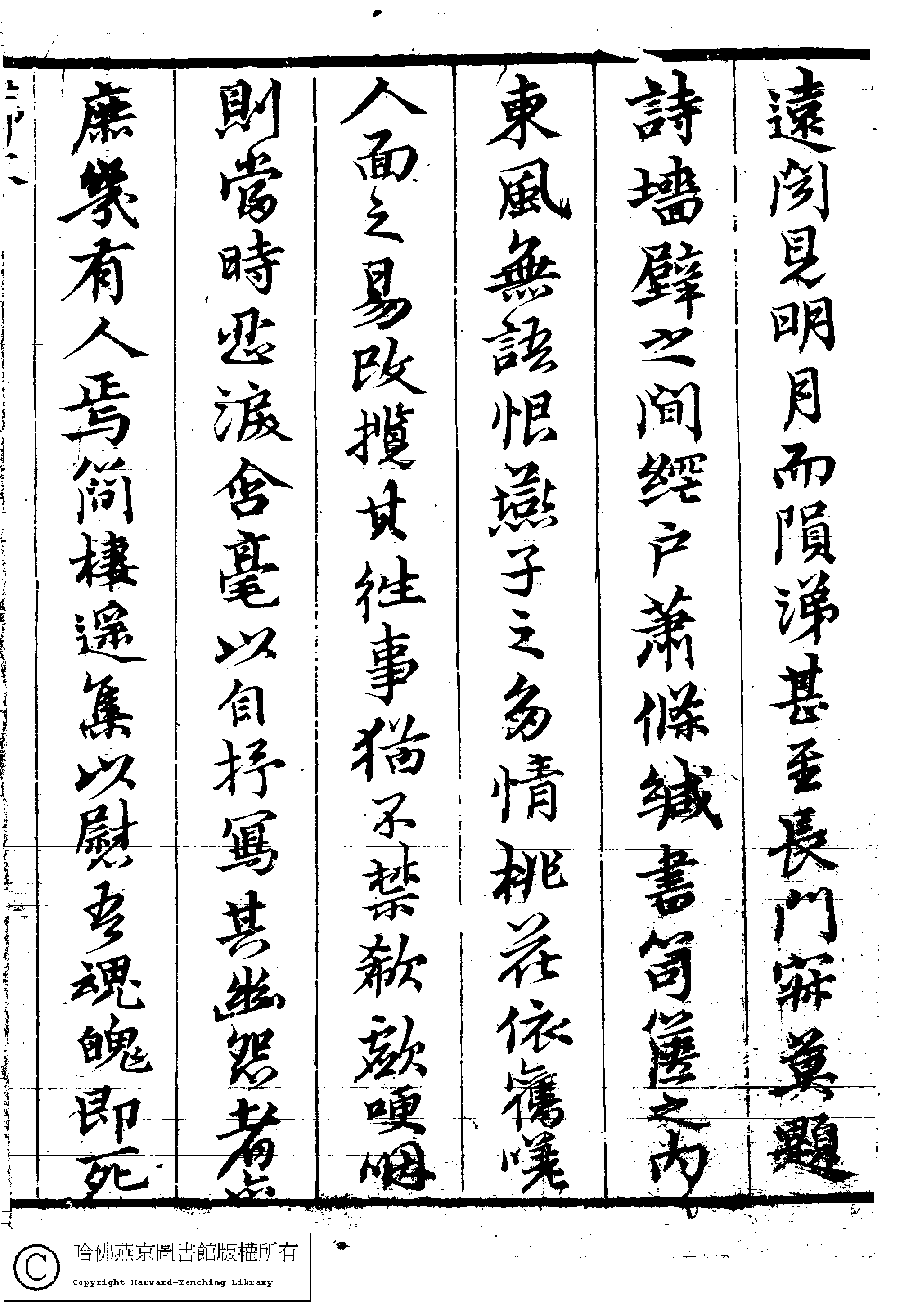 遠閣見明月而隕涕甚至長門寂莫題
詩墻壁之間經戶蕭條緘書筒篋之內
東風無語恨燕子之多情桃花依舊嘆
人面之易改攬其往事猶不禁欷歔哽咽
則當時忍淚含毫以自抒寫其幽怨者
庶幾有人焉簡棲遥集以慰吾魂魄即死
哈佛燕京圖書館版權所有
Copyright Harvard-Yenching Library